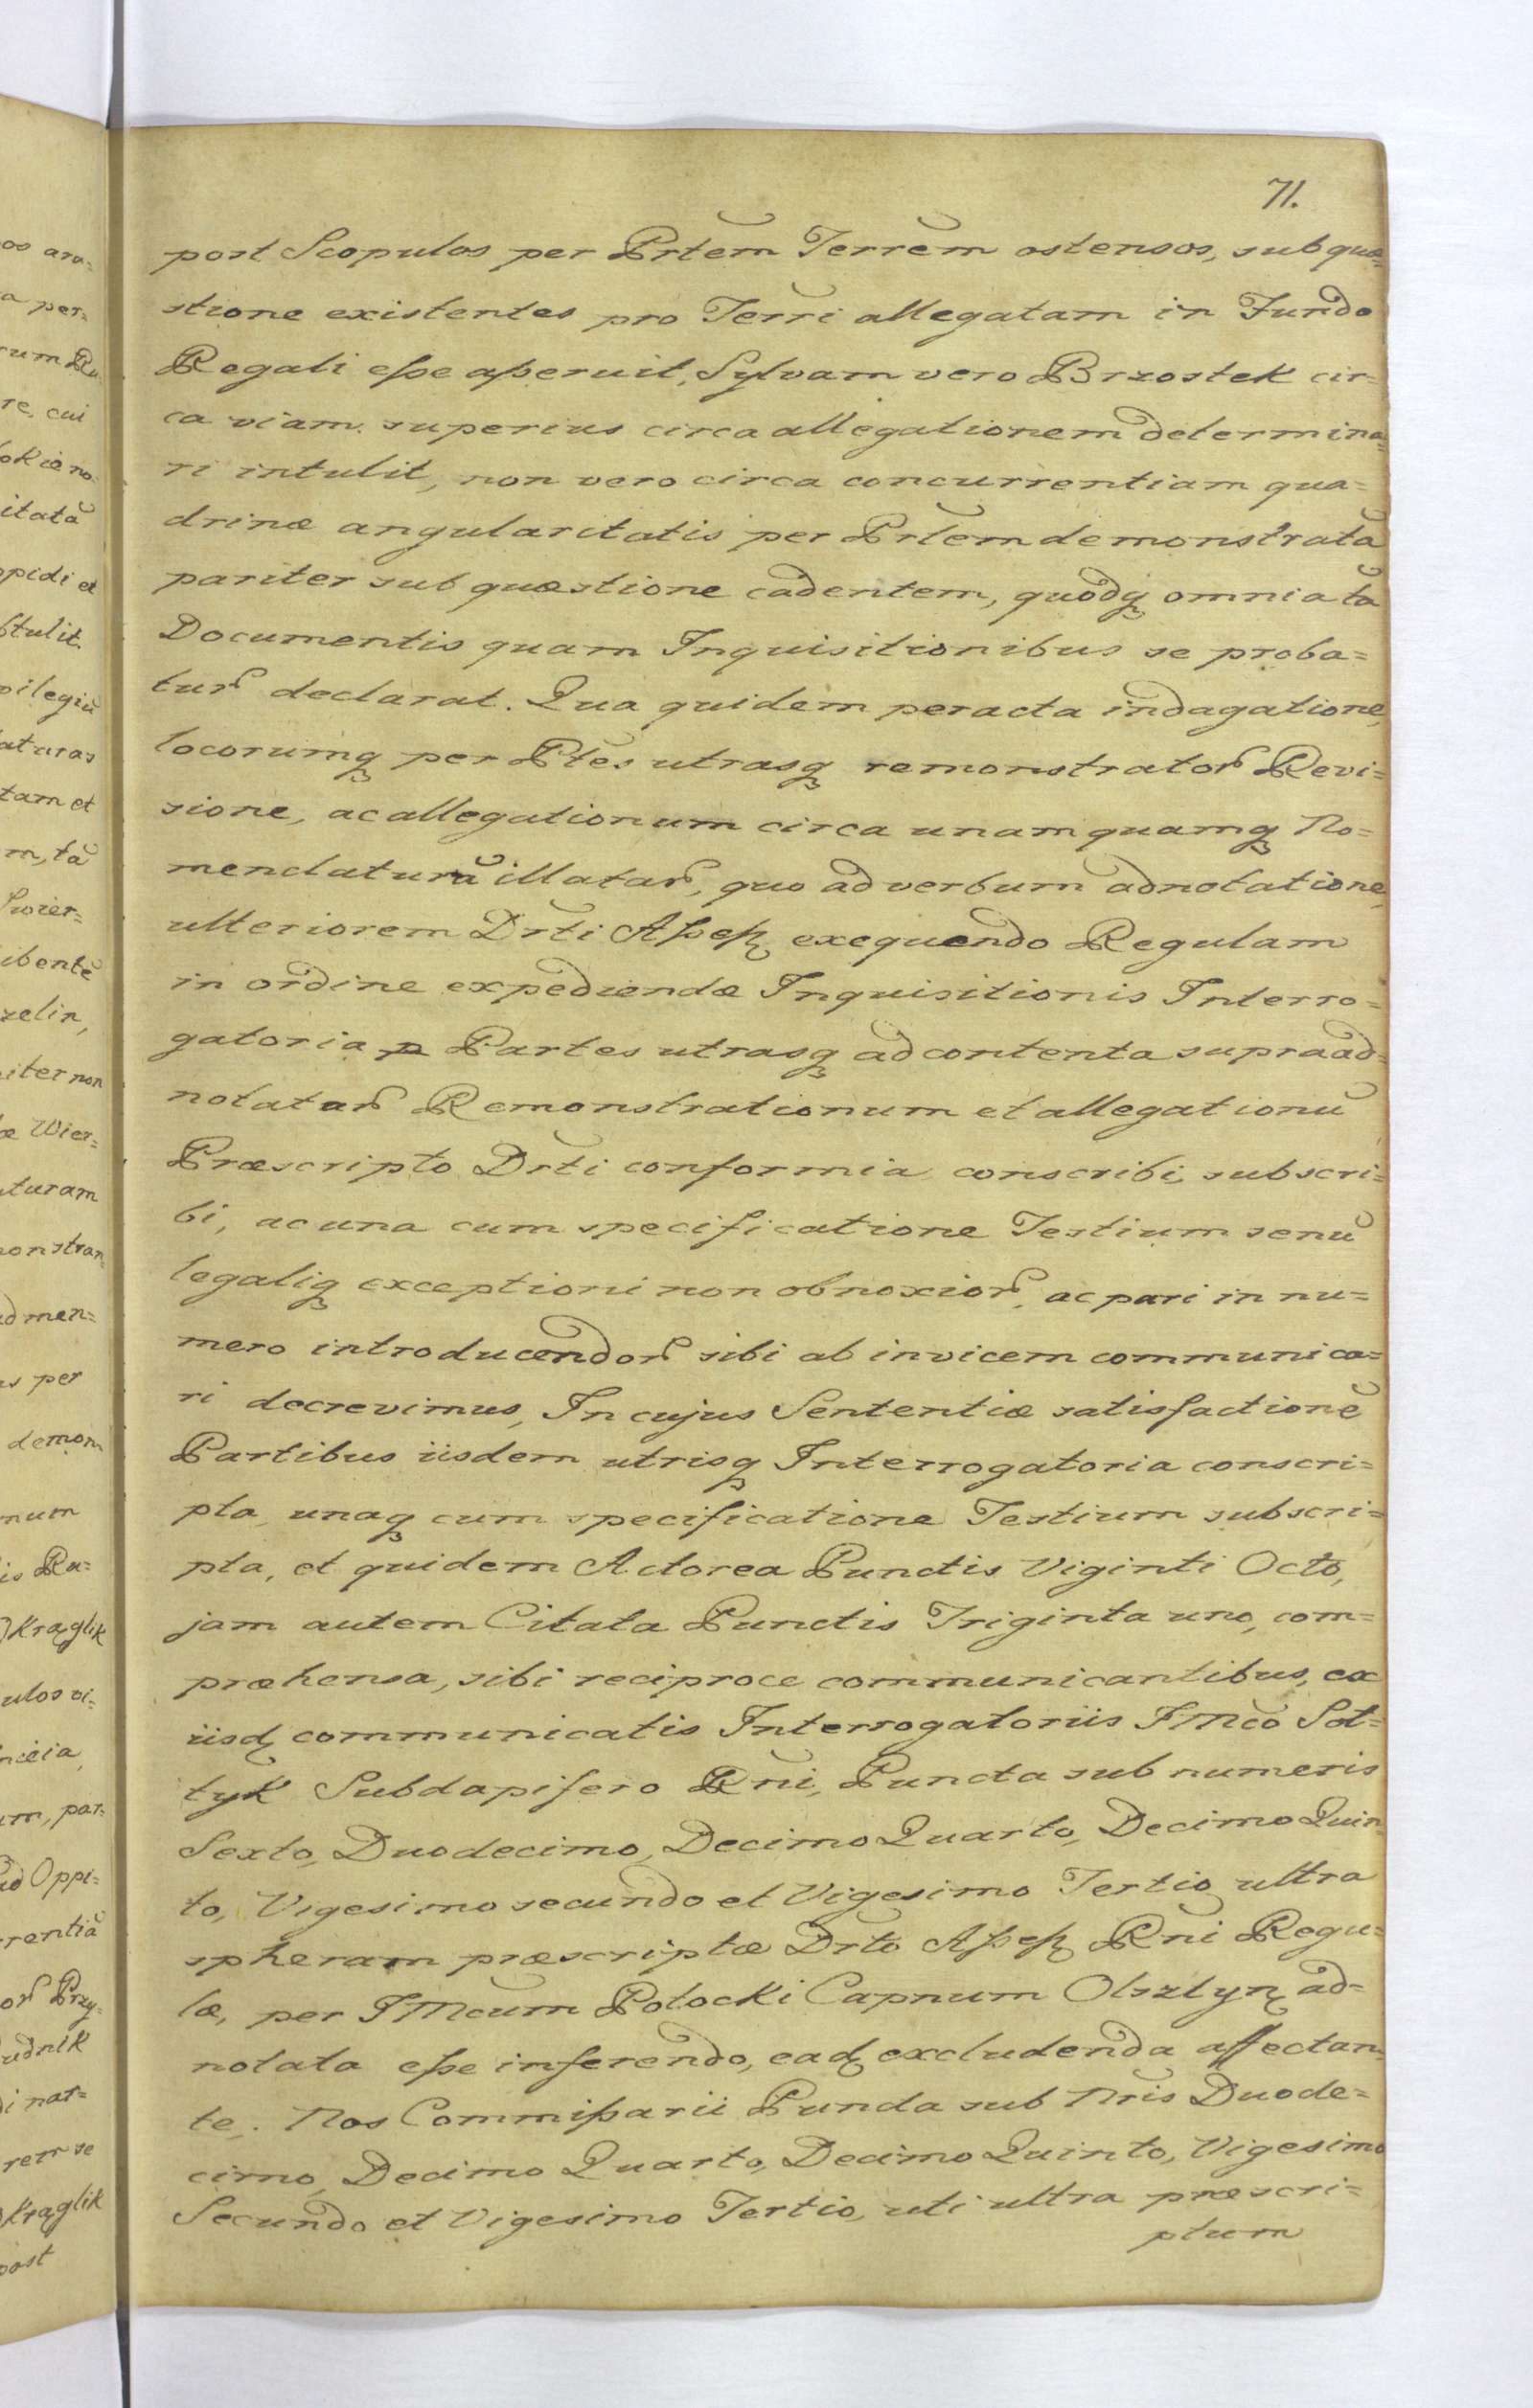 71.
post Scopulos per Prtem Terrem ostensos, sub quæ=
stione existentes pro Terri allegatam in Fundo
Regali eße aßeruit, Sylvam vero Brzostek cir=
ca viam superius circa allegationem determina=
ri intulit, non vero circa concurrentiam qua=
drinæ angularitatis per Prtem demonstratā
pariter sub quæstione cadentem, quodq omnia tā
Documentis quam Inquisitionibus se proba=
tur declarat. Qua quidem peracta indagatione,
locorumq per Ptes utrasq remonstrator Revi=
sione, ac allegationum circa unamquamq No=
menclaturā illatar, quo ad verbum adnotatione,
ulteriorem Drti Aßeß exequendo Regulam
in ordine expediendæ Inquisitionis Interro=
gatoria p Partes utrasq ad contenta supra ad=
notatar Remonstrationum et allegationū
Præscripto Drti conformia conscribi, subscri=
bi, ac una cum specificatione Testium senū
legaliq exceptioni non obnoxior, ac pari in nu=
mero introducendor sibi ab invicem communica=
ri decrevimus, In cujus Sententiæ satisfactionē
Partibus iisdem utrisq Interrogatoria conscri=
pta, unaq cum specificatione Testium subscri=
pta, et quidem Actorea Punctis Viginti Octo,
jam autem Citata Punctis Triginta uno, com=
præhensa, sibi reciproce communicantibus, ex
iisd communicatis Interrogatoriis JMco Sol=
tyk Subdapifero Rni, Puncta sub numeris
Sexto, Duodecimo, Decimo Quarto, Decimo Quin=
to, Vigesimo secundo et Vigesimo Tertio ultra
spheram præscriptæ Drto Aßeß Rni Regu=
læ, per JMcum Potocki Capnum Olsztyn ad=
notata eße inferendo, ead excludenda affectan=
te. Nos Commißarii Puncta sub Nris Duode=
cimo, Decimo Quarto, Decimo Quinto, Vigesimo
Secundo et Vigesimo Tertio, uti ultra præscri=
ptum